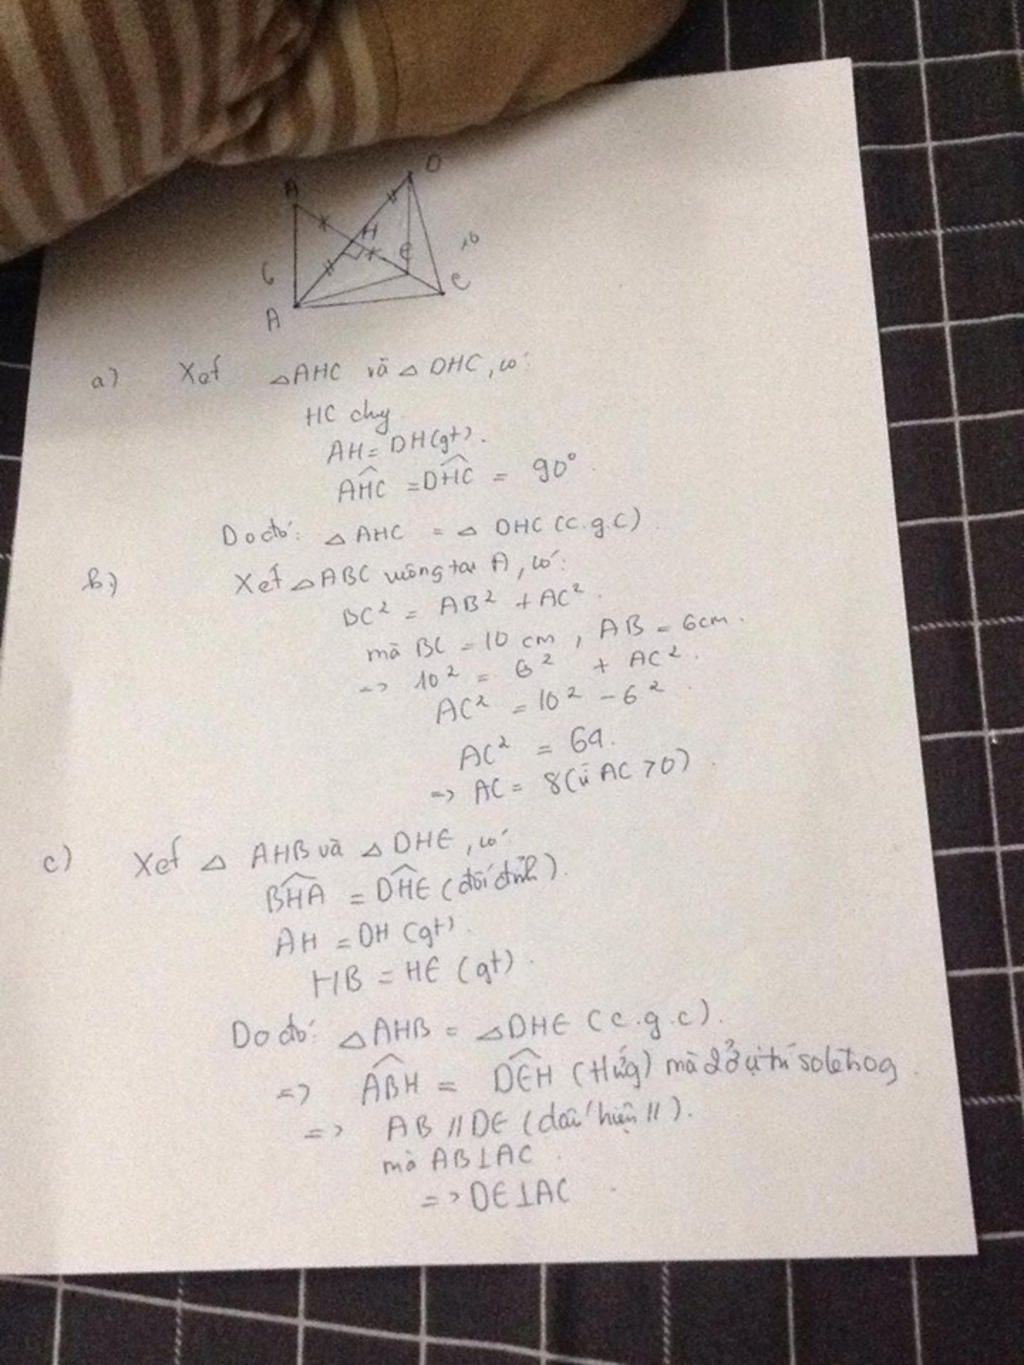 A
D
H
E
6
10
A
C
a) Xét △AHC và △DHC, có:
HC chg
AH = DH (gt).
AHC = DHC = 90°
Do đó: △AHC = △DHC (c.g.c)
b) Xét △ABC vuông tại A, có:
BC² = AB² + AC²
mà BC = 10 cm, AB = 6cm.
=> 10² = 6² + AC².
AC² = 10² - 6²
AC² = 64.
=> AC = 8 (vì AC > 0)
c) Xét △AHB và △DHE, có
BHA = DHE (đối đỉnh).
AH = DH (gt)
HB = HE (gt)
Do đó: △AHB = △DHE (c.g.c).
=> ABH = DEH (tứng) mà 2 ở vị trí soletrog
=> AB // DE (dấu hiệu //).
mà AB⊥AC
=> DE⊥AC